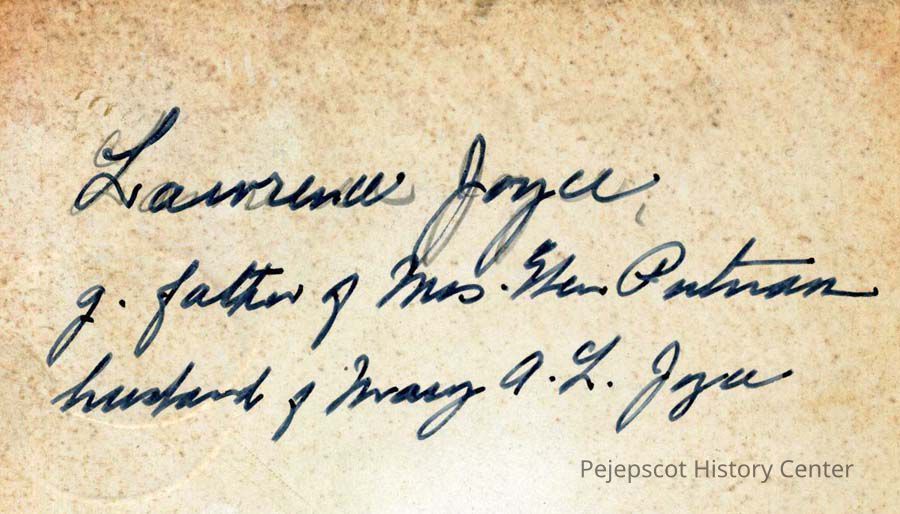 Lawrence Joyce,
g. father of Mrs. Eben Putnam
husband of Mary A. L. Joyce
Pejepscot History Center